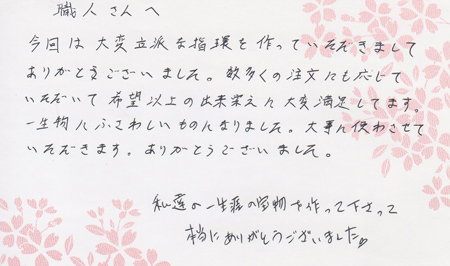 職人さんへ
今回は大変立派な指環を作っていただきまして
ありがとうございました。数多くの注文にも応じて
いただいて希望以上の出来栄えに大変満足してます。
一生物にふさわしいものになりました。大事に使わさせて
いただきます。ありがとうございました。
私達の一生涯の宝物を作って下さって
本当にありがとうございました